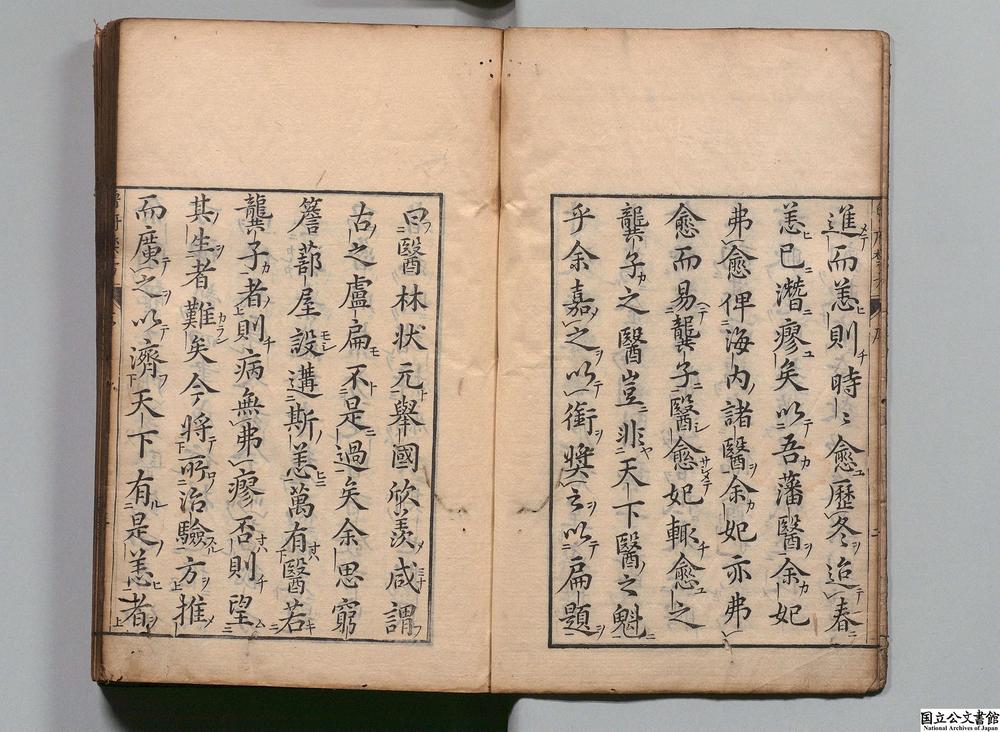 進而恙則時〻愈歷冬迨春
恙已潛瘳矣以吾藩醫余妃
弗愈俾海內諸醫余妃亦弗
愈而易龔子醫愈妃輙愈之
龔子之醫豈非天下醫之魁
乎余嘉之以銜奬之以扁題
曰醫林状元舉國欣羨咸謂
古之盧扁不是過矣余思窮
簷蔀屋設遘斯恙萬有醫若
龔子者則病無弗瘳否則望
其生者難矣今將所治驗方推
而廣之以濟天下有是恙者
国立公文書館
National Archives of Japan